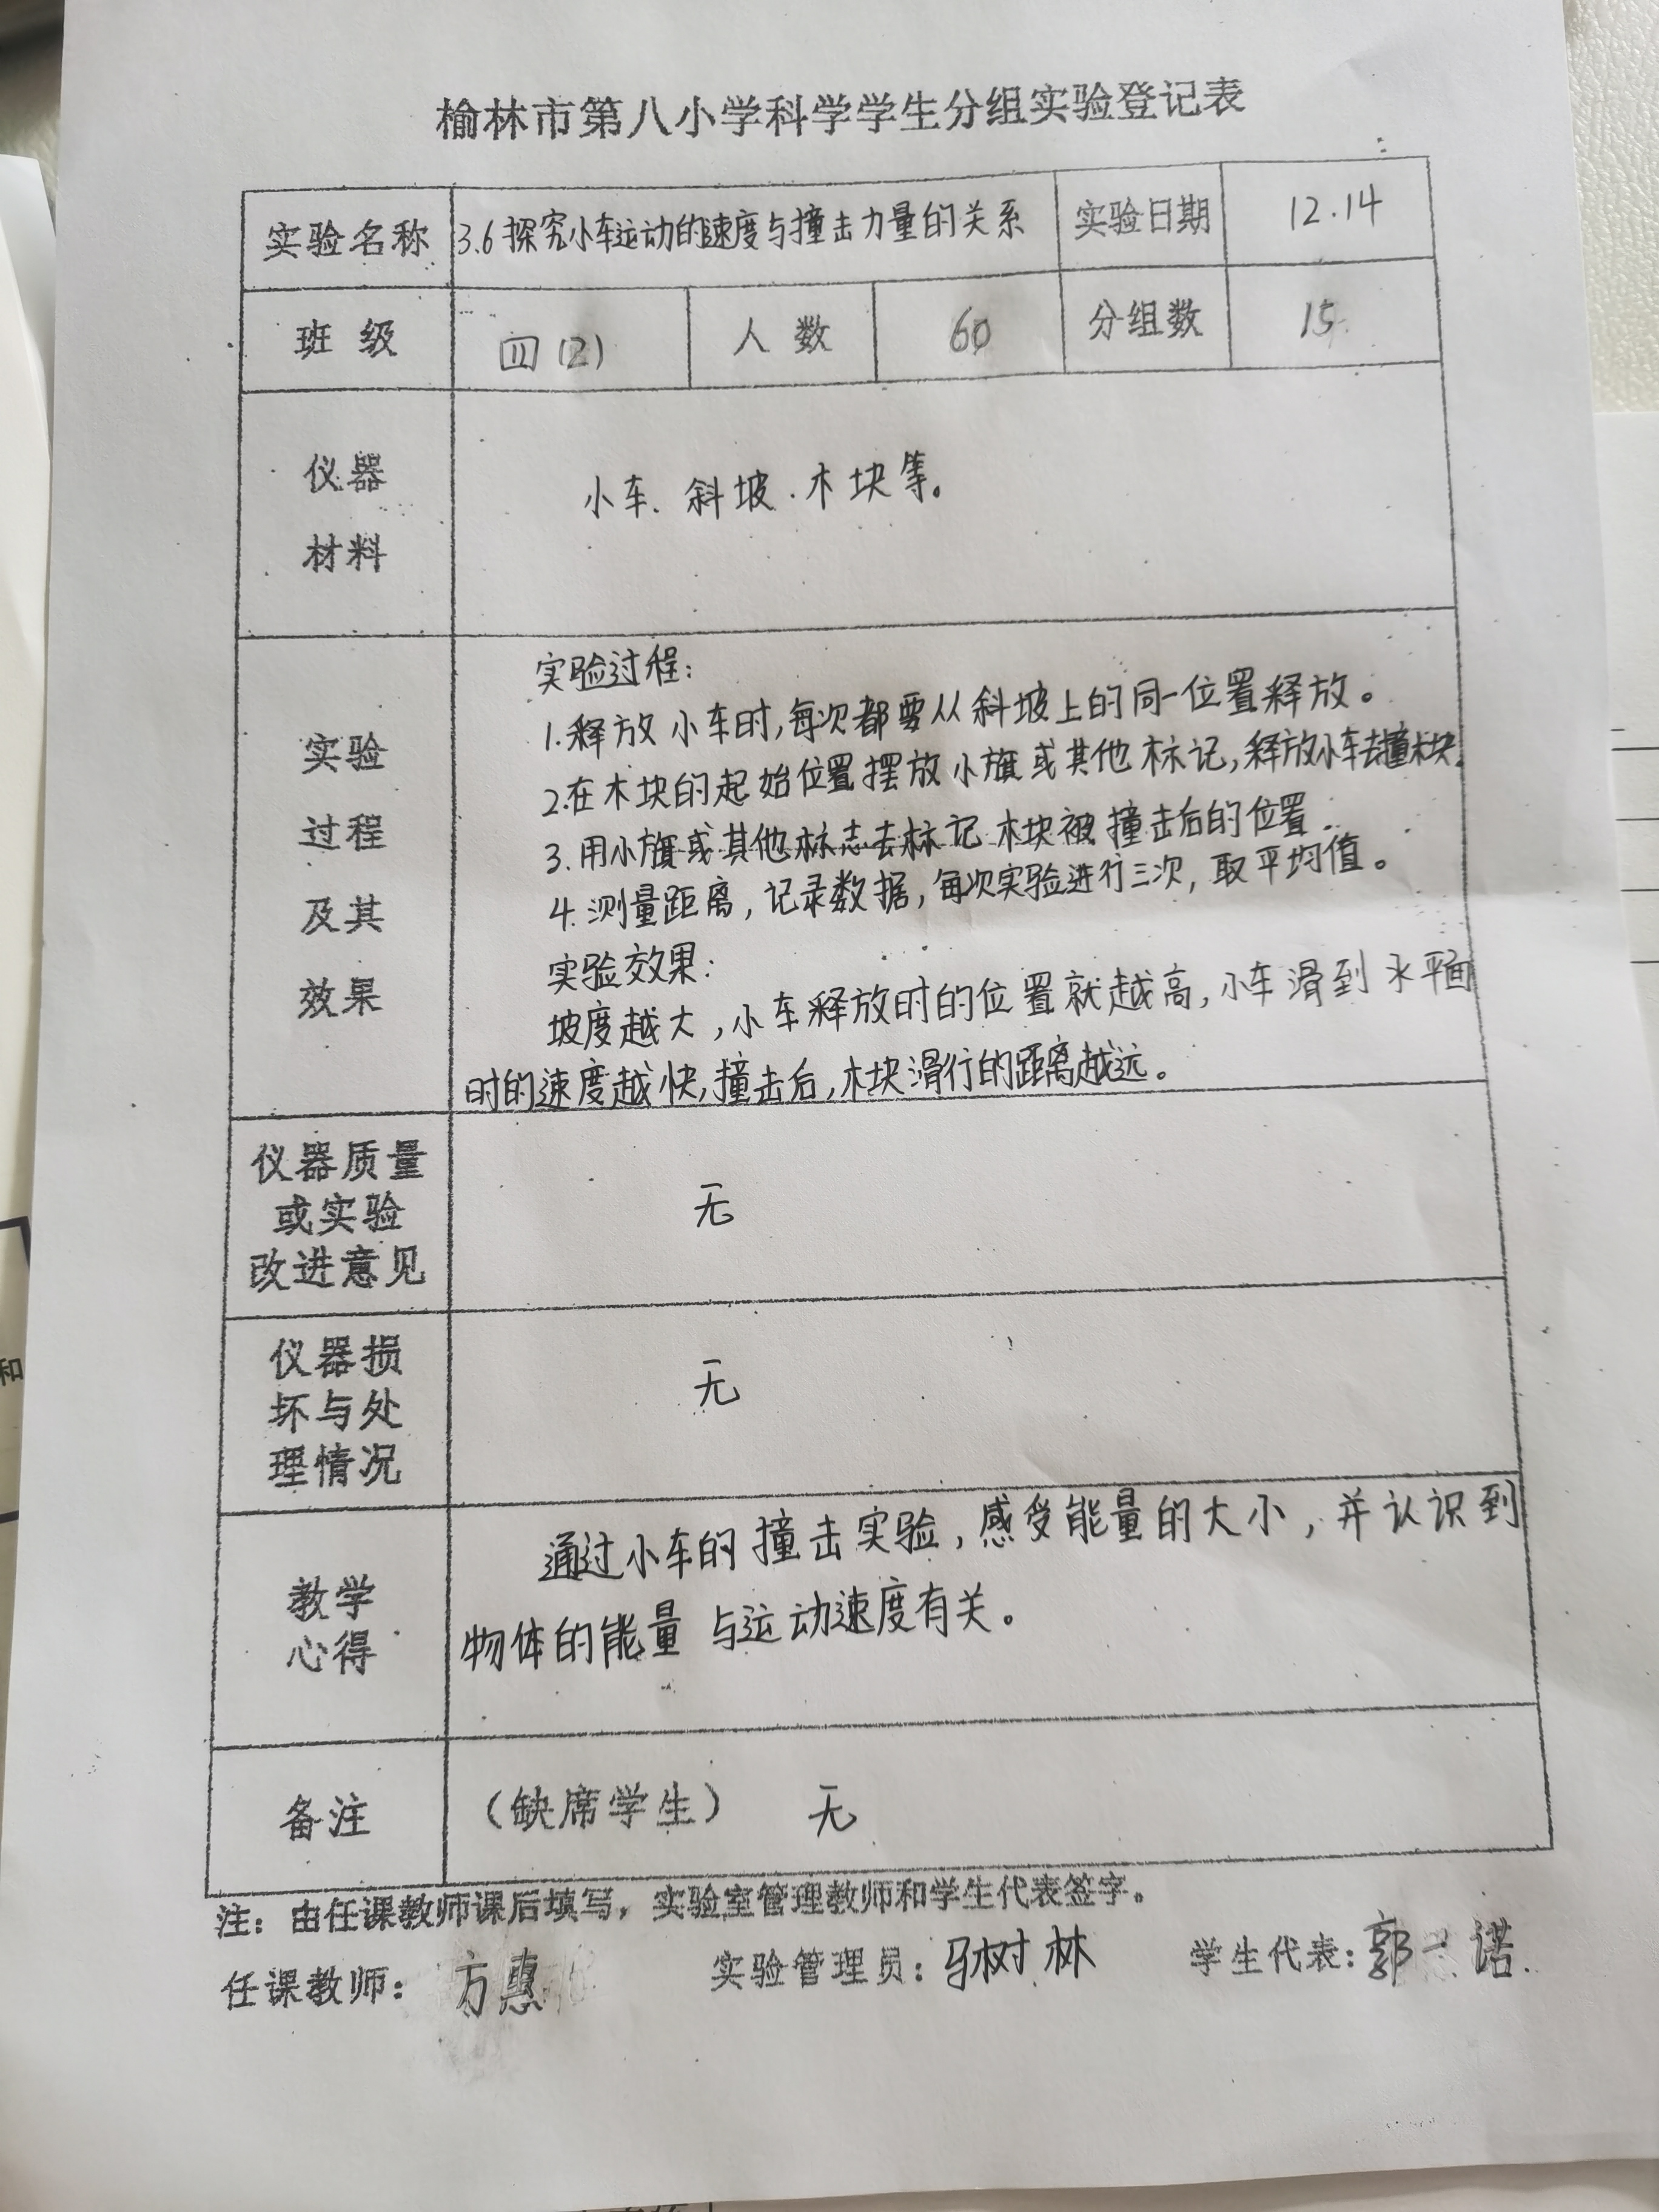 榆林市第八小学科学学生分组实验登记表
实验名称 3.6 探究小车运动的速度与撞击力量的关系 实验日期 12.14
班级 四(2) 人数 60 分组数 15
仪器
材料
小车、斜坡、木块等。
实验
过程
及其
效果
实验过程:
1.释放小车时,每次都要从斜坡上的同一位置释放。
2.在木块的起始位置摆放小旗或其他标记,释放小车去撞木块.
3.用小旗或其他标志去标记木块被撞击后的位置.
4.测量距离,记录数据,每次实验进行三次,取平均值。
实验效果:
坡度越大,小车释放时的位置就越高,小车滑到水平面
时的速度越快,撞击后,木块滑行的距离越远。
仪器质量
或实验
改进意见
无
仪器损
坏与处
理情况
无
教学
心得
通过小车的撞击实验,感受能量的大小,并认识到
物体的能量与运动速度有关。
备注 (缺席学生) 无
注:由任课教师课后填写,实验室管理教师和学生代表签字。
任课教师: 方惠 实验管理员:马树林 学生代表:郭一诺
和